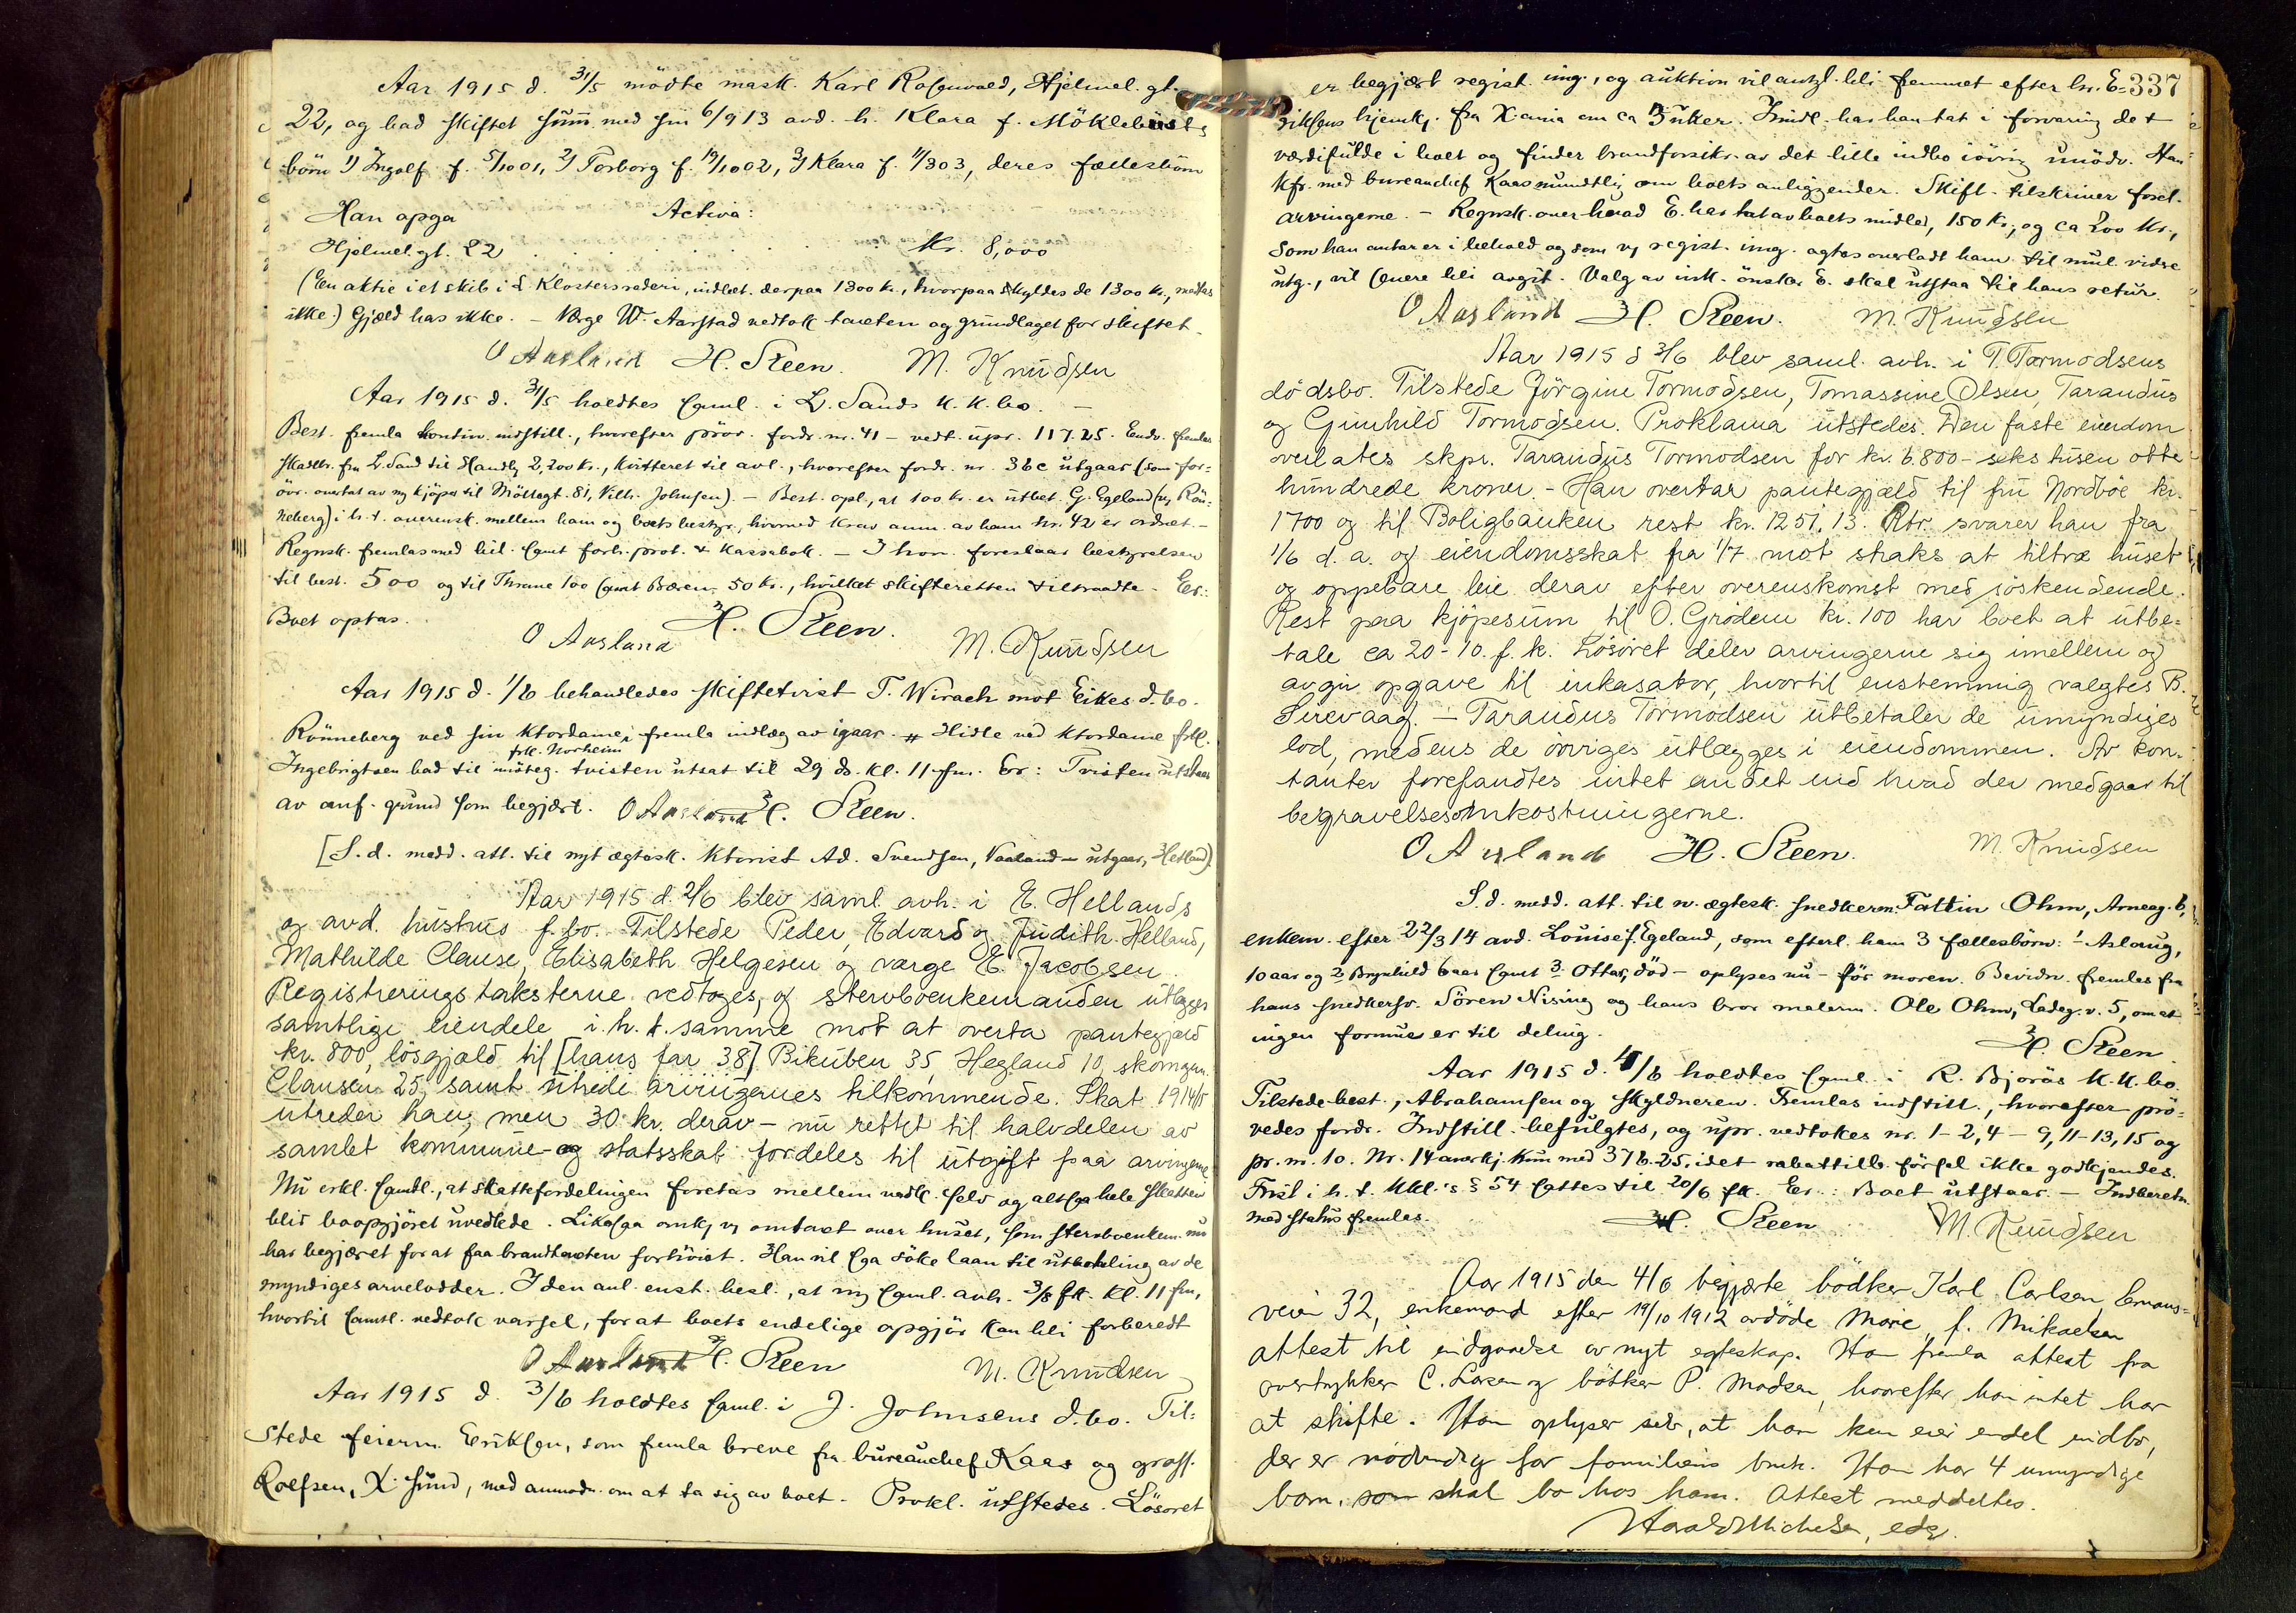 Aar 1915 d. 31/5 mödte mask. Karl Rosenvold, Hjelmel. gt.
22, og bad skiftet summ. med sin 6/9 13 avd. h. Klara f. Möklebusts
börn 1) Ingolf f. 5/10 01, 2) Torborg f. 19/10 02, 3) Klara f. 11/3 03, deres fællesbörn
Han opga Activa:
Hjelmel. gt. 22 . . . . . . Kr. 8,000
(En aktie i et skib i L. Klosters rederi, indbet. derpaa 1300 kr., hvorpaa skyldes de 1300 kr., medtas
ikke.) Gjæld has ikke. – Verge W. Aarstad vedtok taxten og grundlaget for skiftet.
O Ausland H. Steen. M. Knudsen
Aar 1915 d. 31/5 holdtes saml. i L. Sands K. K. bo. –
Best. fremla kontin. indstill., hvorefter pröv. fordr. nr. 41 – vedt. upr. 117.25. Endv. fremlas
skadbr. fra L. Sand til Handb. 2,200 kr., kvitteret til avl., hvorefter fordr. nr. 36c utgaar (som for-
övr. overtat av ny kjöper til Möllegt. 81, Vilh. Johnsen) – Best. opl., at 100 kr. er utbet. G. Egeland (v. Rön-
neberg) i h. t. overensk. mellem ham og boets bestyr., hvormed krav anm. av ham nr. 42 er ordnet. –
Regnsk. fremlas med bil. samt forh. prot. & kassabok. – I hon. foreslaar bestyrelsen
til best. 500 og til Thrane 100 samt Bæren. 50 kr., hvilket skifteretten tiltraadte. Er:
Boet optas.
O Ausland H. Steen. M. Knudsen
Aar 1915 d. 1/6 behandledes skiftetvist T. Wirach mot Eikes d. bo.
Rönneberg ved sin ktordame, fremla indlæg av igaar. # Hidle ved ktordame frk.
frk. Norheim
Ingebrigtsen bad til imöteg. tvisten utsat til 29 ds. kl. 11 fm. Er: Tvisten utstaar
av anf. grund som begjært. O Ausland H. Steen.
[S. d. medd. att. til nyt ægtesk. ktorist Ad. Svendsen, Vaaland – utgaar, Hetland).
Aar 1915 d. 2/6 blev saml. avh. i E. Hellands
og avd. hustrus f. bo. Tilstede Peder, Edvard og Judith Helland,
Mathilde Clause, Elisabeth Helgesen og værge E. Jacobsen.
Registreringstaksterne vedtoges, og stervboenkemanden utlægges
samtlige eiendele i. h. t. samme mot at overta pantegjæld
kr. 800, lösgjæld til [hans far 38] Bikuben 35, Hegland 10, skomgm.
Clausen 25, samt utrede arvingernes tilkommende. Skat 1914/15
utreder han, men 30 kr. derav – nu rettet til halvdelen av
samlet kommune- og statsskat fordeles til utgift paa arvingerne.
Nu erkl. samtl., at skattefordelingen foretas mellem vedk. selv og altsaa hele skatten
blir boopgjöret uvedkde. Likesaa omkj. v. omtaxt over huset, som stervboenkem. nu
har begjæret for at faa brandtaxten forhöiet. Han vil saa söke laan til utbetaling av de
myndiges arvelodder. I den anl. enst. besl., at ny saml. avh. 3/8 fk. kl. 11 fm,
hvortil samtl. vedtok varsel, for at boets endelige opgjör kan bli forberedt
O Ausland H. Steen M. Knudsen
Aar 1915 d. 3/6 holdtes saml. i J. Johnsens d. bo. Til-
stede feierm. Eriksen, som fremla breve fra bureauchef Kaas og gross.
Roefsen, X.sund, med anmodn. om at ta sig av boet. Prokl. utstedes. Lösöret
337
er begjært regist. ing., og auktion vil antgl. bli fremmet efter hr. E-
riksens hjemkj. fra X.ania om ca 3 uker. Imidl. har han tat i forvaring det
værdifulde i boet og finder brandforsikr. av det lille indbo iövrig unödv. Han
kfr. med bureauchef Kaas mundtlig om boets anliggender. Skift. tilskriver forel.
arvingerne. – Regnsk. over hvad E. har tat av boets midler, 150 Kr., og ca 200 Kr.,
som han antar er i behold og som v. regist. ing. agtes overladt ham til mul. vidre
utg., vil senere bli avgit. Valg av ink. önsker E. skal utstaa til hans retur.
O Ausland H. Steen. M. Knudsen
Aar 1915 d 3/6 blev saml. avh. i T. Tormodsens
dödsbo. Tilstede Jörgine Tormodsen, Tomassine Olsen, Tarandus
og Gunhild Tormodsen. Proklama utstedes. Den faste eiendom
overlates skpr. Tarandus Tormodsen for kr. 6.800 – seks tusen otte
hundrede kroner. – Han overtar pantegjæld til fru Nordböe kr.
1700 og til Boligbanken rest kr. 1251.13. Rtr. svarer han fra
1/6 d. a. og eiendomsskat fra 1/7 mot straks at tiltræ huset
og oppebære leie derav efter overenskomst med söskendende.
Rest paa kjöpesum til O. Grödem kr. 100 har boet at utbe-
tale ca 20-10. f. k. Lösöret deler arvingerne sig imellem og
avgir opgave til inkasator, hvortil enstemmig valgtes B.
Sirevaag. – Tarandus Tormodsen utbetaler de umyndiges
lod, medens de övriges utlægges i eiendommen. Av kon-
tanter forefandtes intet andet end hvad der medgaar til
begravelsesomkostningerne.
O Ausland H. Steen. M. Knudsen
S. d. medd. att. til n. ægtesk. snedkerm. Fattin Ohm, Arneag. 6,
enkem. efter 22/3 14 avd. Louise f. Egeland, som efterl. ham 3 fællesbörn: 1 Aslaug,
10 aar og 2 Brynhild 6 aar samt 3. Ottar, död – oplyses nu – för moren. Bevidn. fremlas fra
hans snedkersv. Sören Nising og hans bror malerm. Ole Ohm, Ladeg. v. 5, om at
ingen formue er til deling.
H. Steen.
Aar 1915 d. 4/6 holdtes saml. i R. Bjoräs K. K. bo.
Tilstede best., Abrahamsen og skyldneren. Fremlas indstill., hvorefter prö-
vedes fordr. Indstill. befulgtes, og upr. vedtokes nr. 1-2, 4-9, 11-13, 15 og
pr. nr. 10. Nr. 14 anerkj. kun med 376.25, idet rabattillb. försel ikke godkjendes.
Frist i h. t. Kkl.'s § 54 sattes til 20/6 fk. Er.: Boet utstaar. – Indberetn.
med status fremlas.
H. Steen M. Knudsen
Aar 1915 den 4/6 begjærte bödker Karl Carlsen, Emaus-
veien 32, enkemand efter 19/10 1912 avdöde Marie f. Mikaelsen
attest til indgaaelse av nyt egteskap. Han fremla attest fra
overtrykker C. Larsen og bötker P. Madsen, hvorefter han intet har
at skifte. Han oplyser selv, at han kun eier endel indbo,
der er nödvendig for familiens bruk. Han har 4 umyndige
barn, som skal bo hos ham. Attest meddeltes.
Harald Michelsen, edsv.